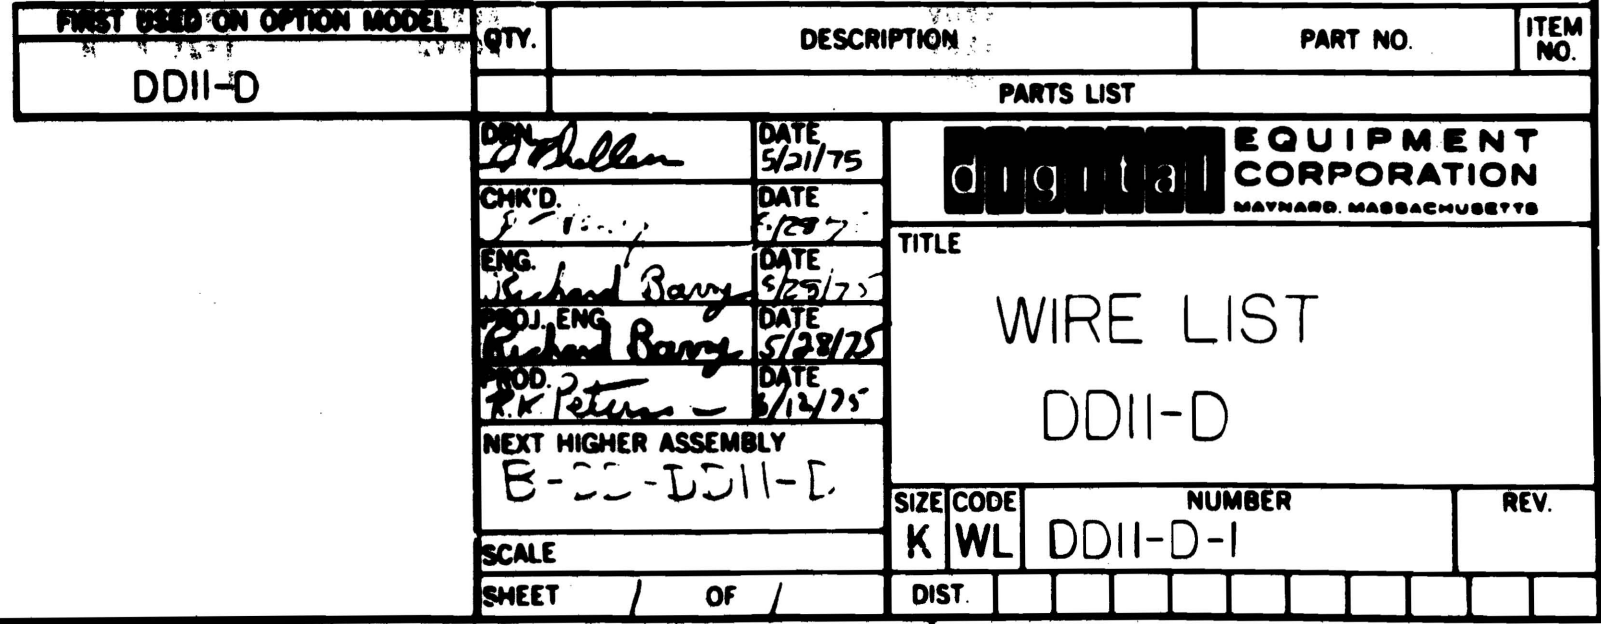 FIRST USED ON OPTION MODEL
DD11-D
QTY.
DESCRIPTION
PART NO.
ITEM NO.
PARTS LIST
DRN.
DATE
5/21/75
CHK'D.
DATE
ENG.
Richard Barry
DATE
5/25/75
PROJ. ENG
Richard Barry
DATE
5/28/75
PROD.
R.K. Peters
DATE
6/12/75
NEXT HIGHER ASSEMBLY
B-DD-DD11-D
SCALE
SHEET 1 OF 1
digital
EQUIPMENT
CORPORATION
MAYNARD, MASSACHUSETTS
TITLE
WIRE LIST
DD11-D
SIZE
K
CODE
WL
NUMBER
DD11-D-1
REV.
DIST.